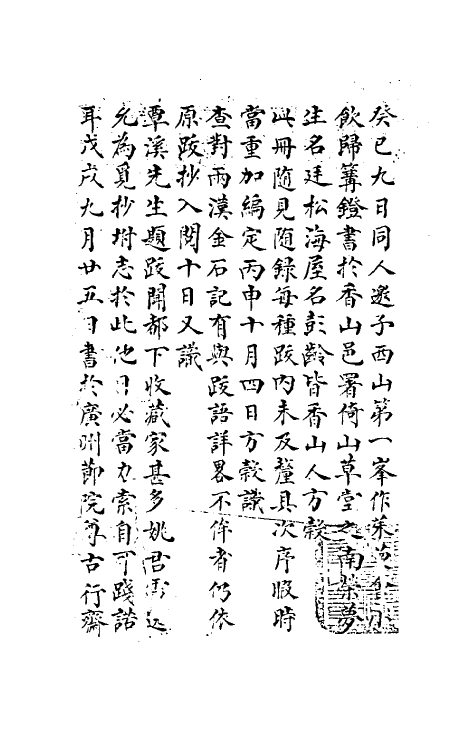 癸巳九日同人邀予西山第一峯作茱萸
飲歸篝鐙書於香山邑署倚山草堂之南榮夢
生名廷松海屋名彭齡皆香山人方穀
此冊隨見隨錄每種跋內未及釐具次序暇時
當重加編定丙申十月四日方穀識
查對兩漢金石記有與跋語詳畧不侔者仍依
原跋抄入閱十日又識
覃溪先生題跋開都下收藏家甚多姚君
允為覓抄坿志於此他日必當力索自可踐諾
耳戊戌九月廿五日書於廣州節院尊古行齋